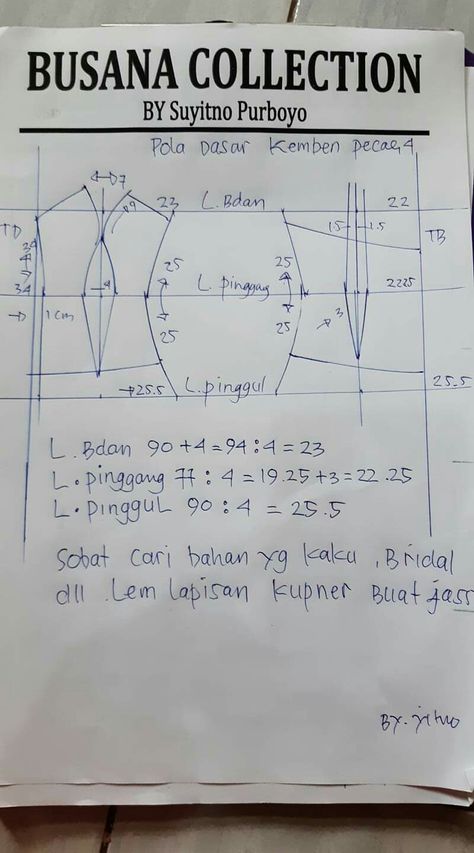 BUSANA COLLECTION
BY Suyitno Purboyo
Pola Dasar Kemben pecah 4
4 7
9
23
L. Bdan
22
TD
34
34
1 cm
4
25
25
L. pinggang
25
25
1.5 1.5
TB
2225
3
25.5
L. pinggul
25.5
L. Bdan 90 + 4 = 94 : 4 = 23
L. pinggang 77 : 4 = 19.25 + 3 = 22.25
L. pinggul 90 : 4 = 25.5
Sobat cari bahan yg kaku, Bridal
dll . Lem lapisan kupner Buat jass
By. yitno